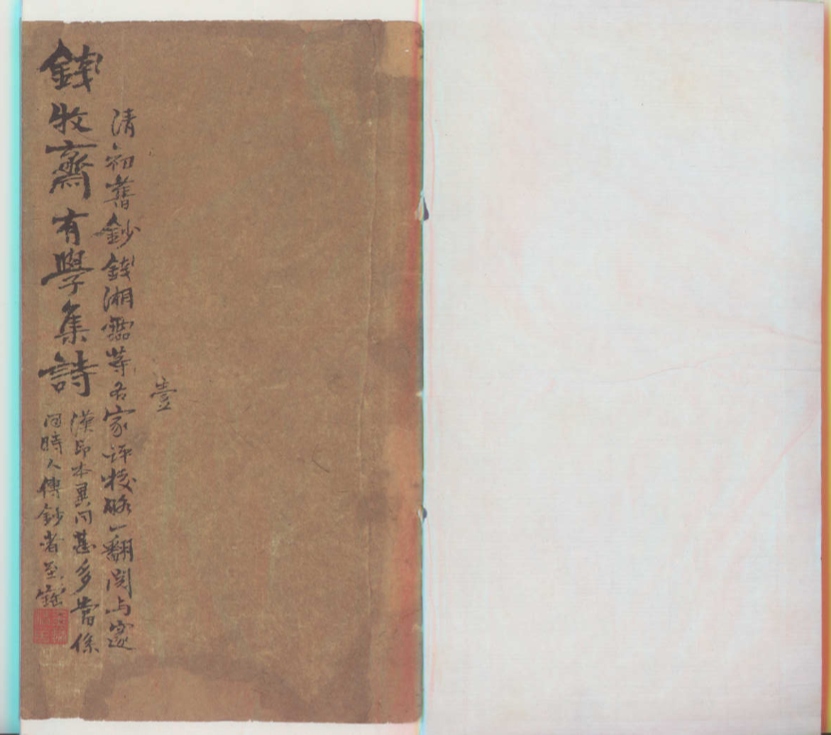 錢牧齋有學集詩
清初舊鈔錢湘靈等名家評校略一翻閱与邃
漢印本異同甚多當係
同時人傳鈔者
壹